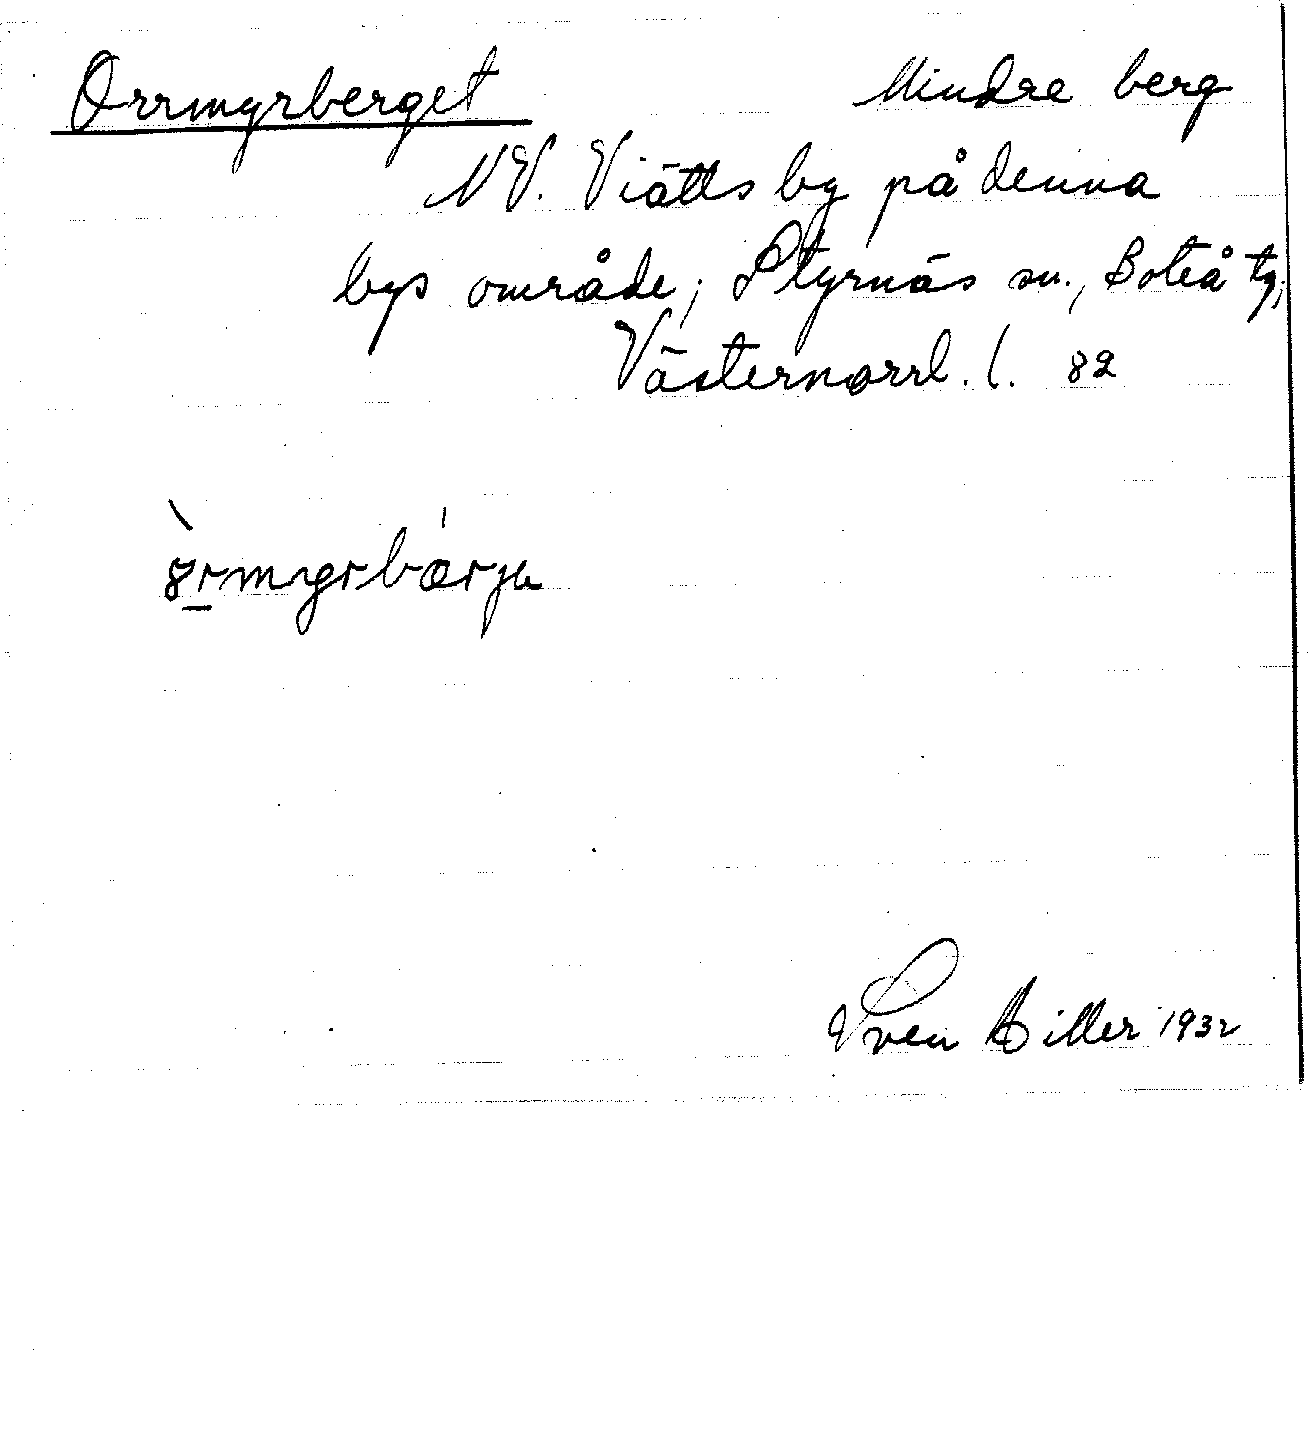 Orrmyrberget Mindre berg
NV. Viätts by på denna
bys område; Styrnäs sn., Boteå tg,
Västernorrl. l. 82
Sven Hiller 1932